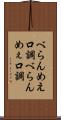 べらんめえ
口調べらん
めぇ口調